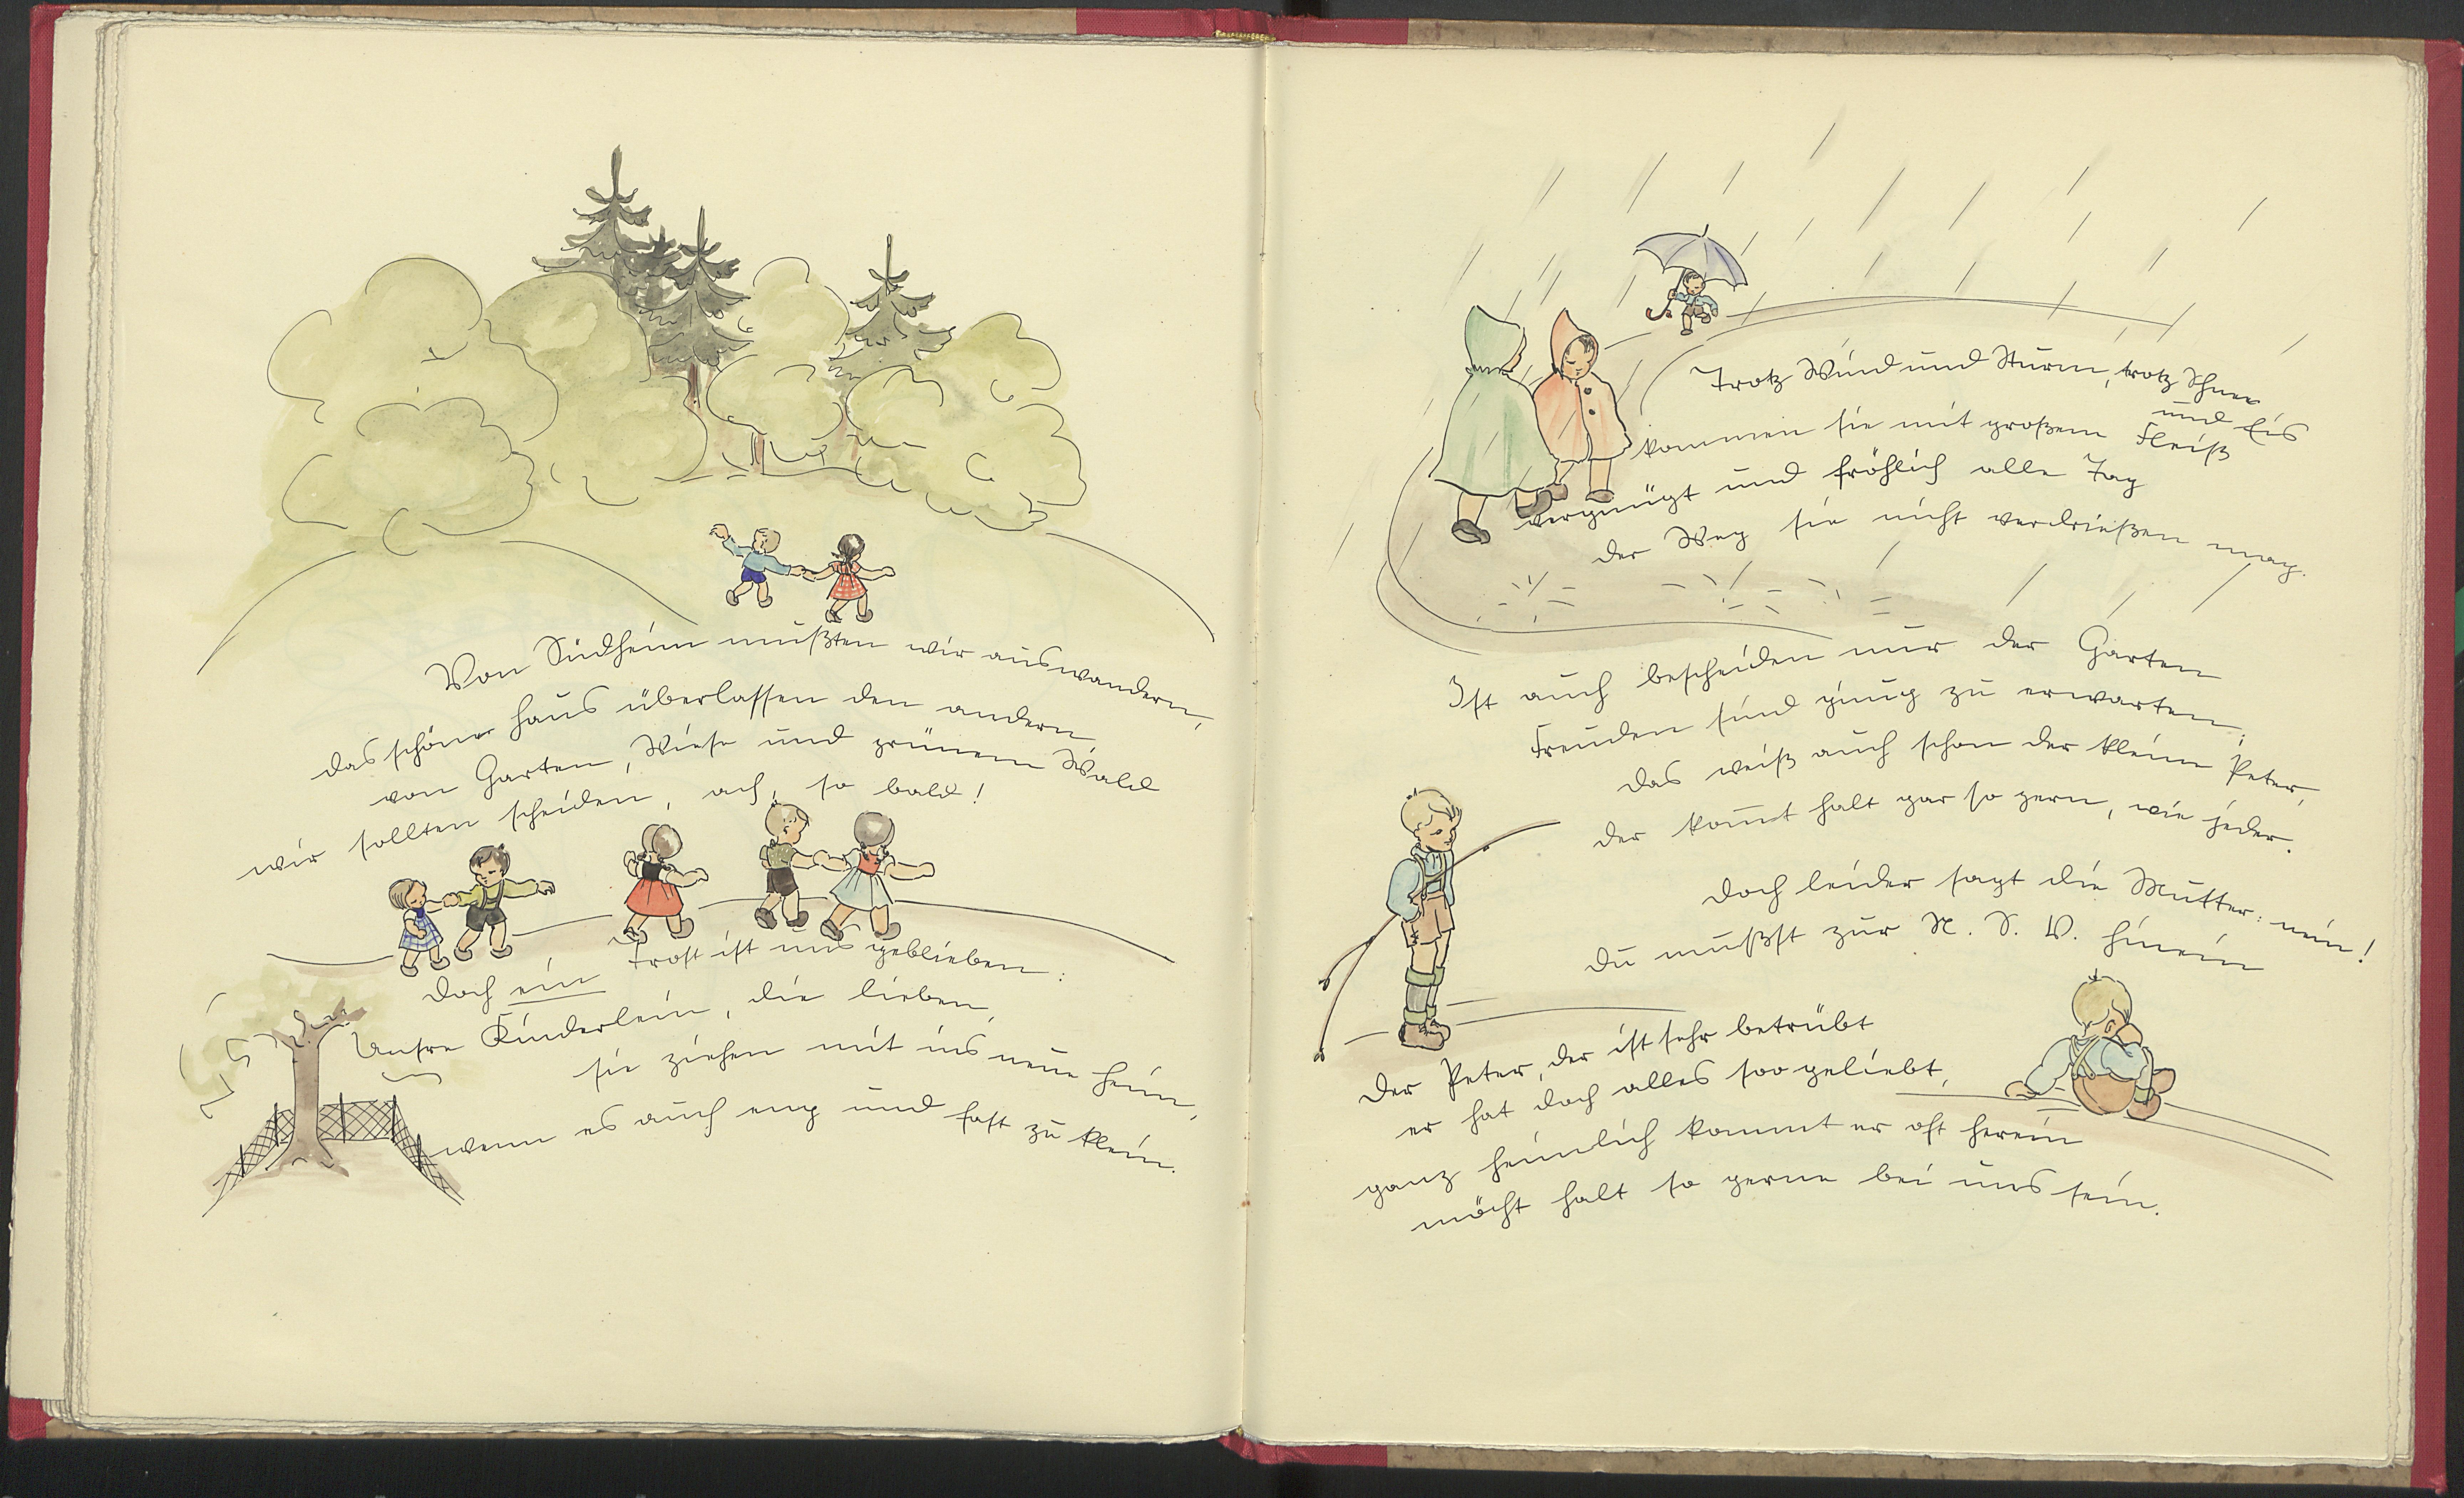 Von Südheim mußten wir auswandern,
das schöne Haus überlassen den andern
von Garten, Wiese und grünem Wald
wir sollten scheiden, ach, so bald!
Doch ein Trost ist uns geblieben:
Unsre Kinderlein, die lieben,
sie ziehen mit ins neue Heim,
wenn es auch eng und fast zu klein.
Trotz Wind und Sturm, trotz Schnee
und Eis
kommen sie mit großem Fleiß
vergnügt und fröhlich alle Tag
der Weg sie nicht verdrießen mag.
Ist auch bescheiden nur der Garten
Freuden sind g'nug zu erwarten,
das weiß auch schon der kleine Peter,
der kommt halt gar so gern, wie jeder.
Doch leider sagt die Mutter: nein!
Du mußst zur N. S. V. hinein
Der Peter, der ist sehr betrübt
er hat doch alles soo geliebt,
ganz heimlich kommt er oft herein
möcht halt so gerne bei uns sein.